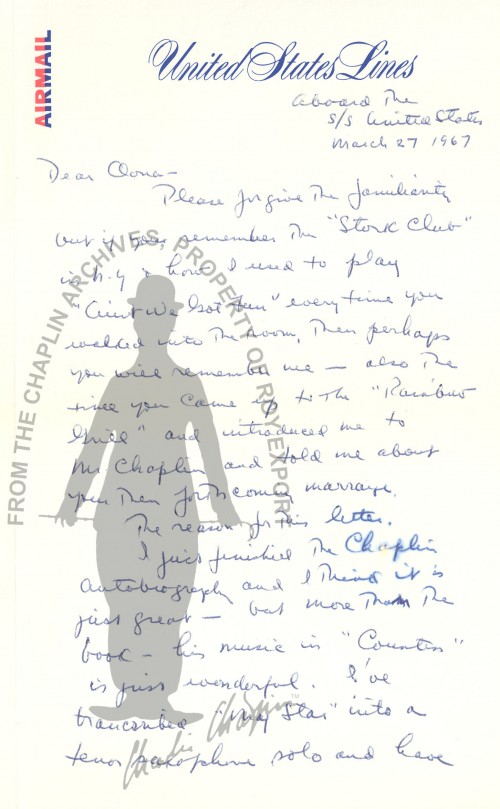 AIRMAIL
United States Lines
aboard The
s/s United States
March 27 1967
Dear Oona -
Please forgive The familiarity
but if you remember The "Stork Club"
in N.Y & how I used to play
"Ain't We Got Fun" every time you
walked into The room, Then perhaps
you will remember me - also The
time you came up to The "Rainbow
Grill" and introduced me to
Mr. Chaplin and told me about
your Then forthcoming marriage.
The reason for this letter.
I just finished The Chaplin
Autobiography and I Think it is
just great - but more Than The
book - his music in "Countess"
is just wonderful. I've
transcribed "My Star" into a
tenor saxophone solo and have
FROM THE CHAPLIN ARCHIVES, PROPERTY OF ROY EXPORT
Charlie Chaplin™